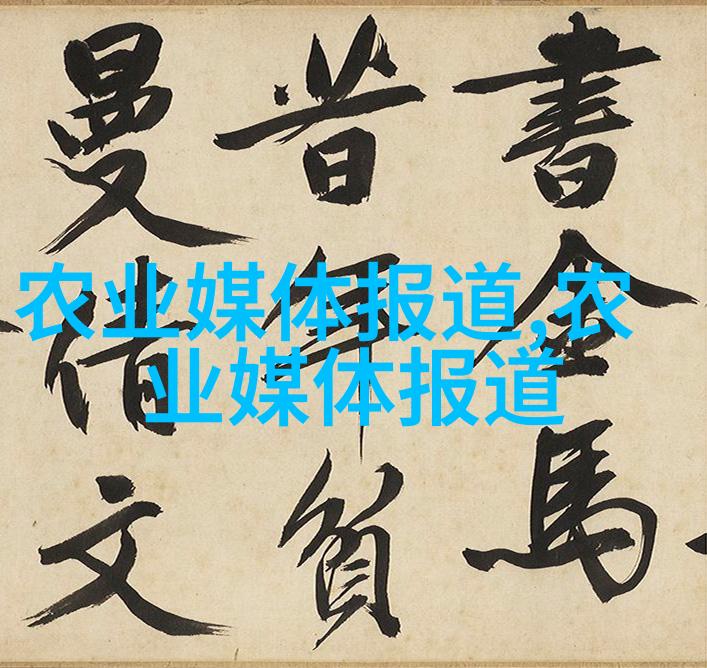 書金馬
昔年貧
曼倩文
农业媒体报道,农
业媒体报道